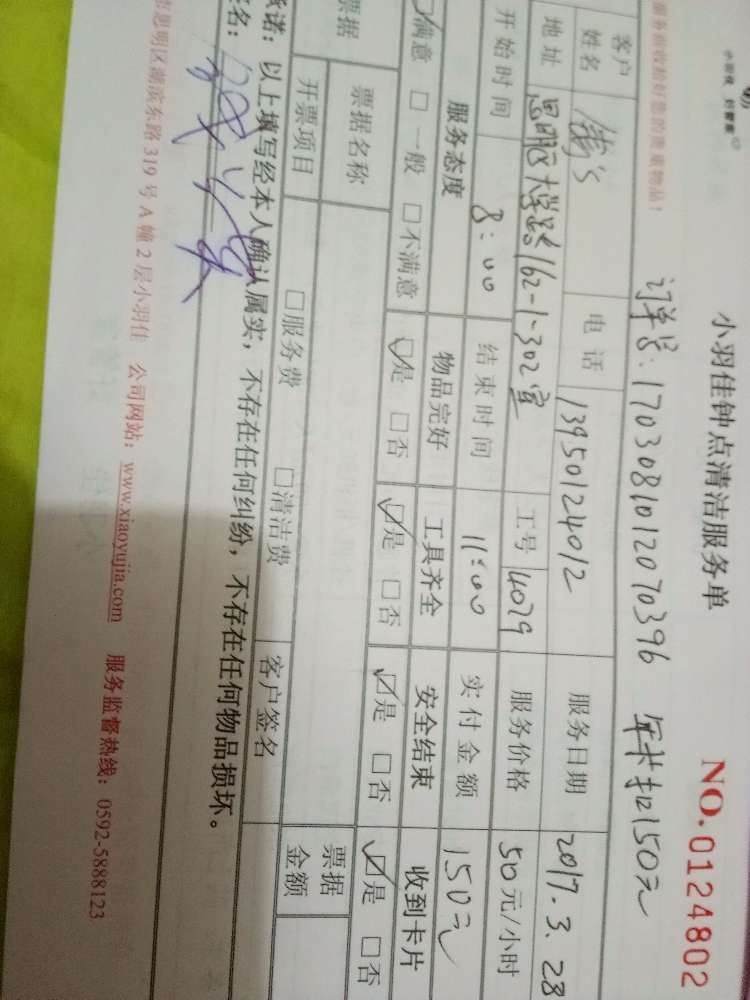 小羽佳钟点清洁服务单
NO.0124802
订单号:1703081012070396 年卡扣150元
服务前收拾好您的贵重物品!
客户姓名 电话 13950124012 服务日期 2017.3.28
地址 思明区大学路162-1-302室 工号 4079 服务价格 50元/小时
开始时间 8:00 结束时间 11:00 实付金额 150元
服务态度 物品完好 工具齐全 安全结束 收到卡片
☑满意 □一般 □不满意 ☑是 □否 ☑是 □否 ☑是 □否 ☑是 □否
票据 票据名称 票据金额
开票项目 □服务费 □清洁费 客户签名
承诺:以上填写经本人确认属实,不存在任何纠纷,不存在任何物品损坏。
签名:
思明区湖滨东路319号A幢2层小羽佳 公司网站:www.xiaoyujia.com 服务监督热线:0592-5888123